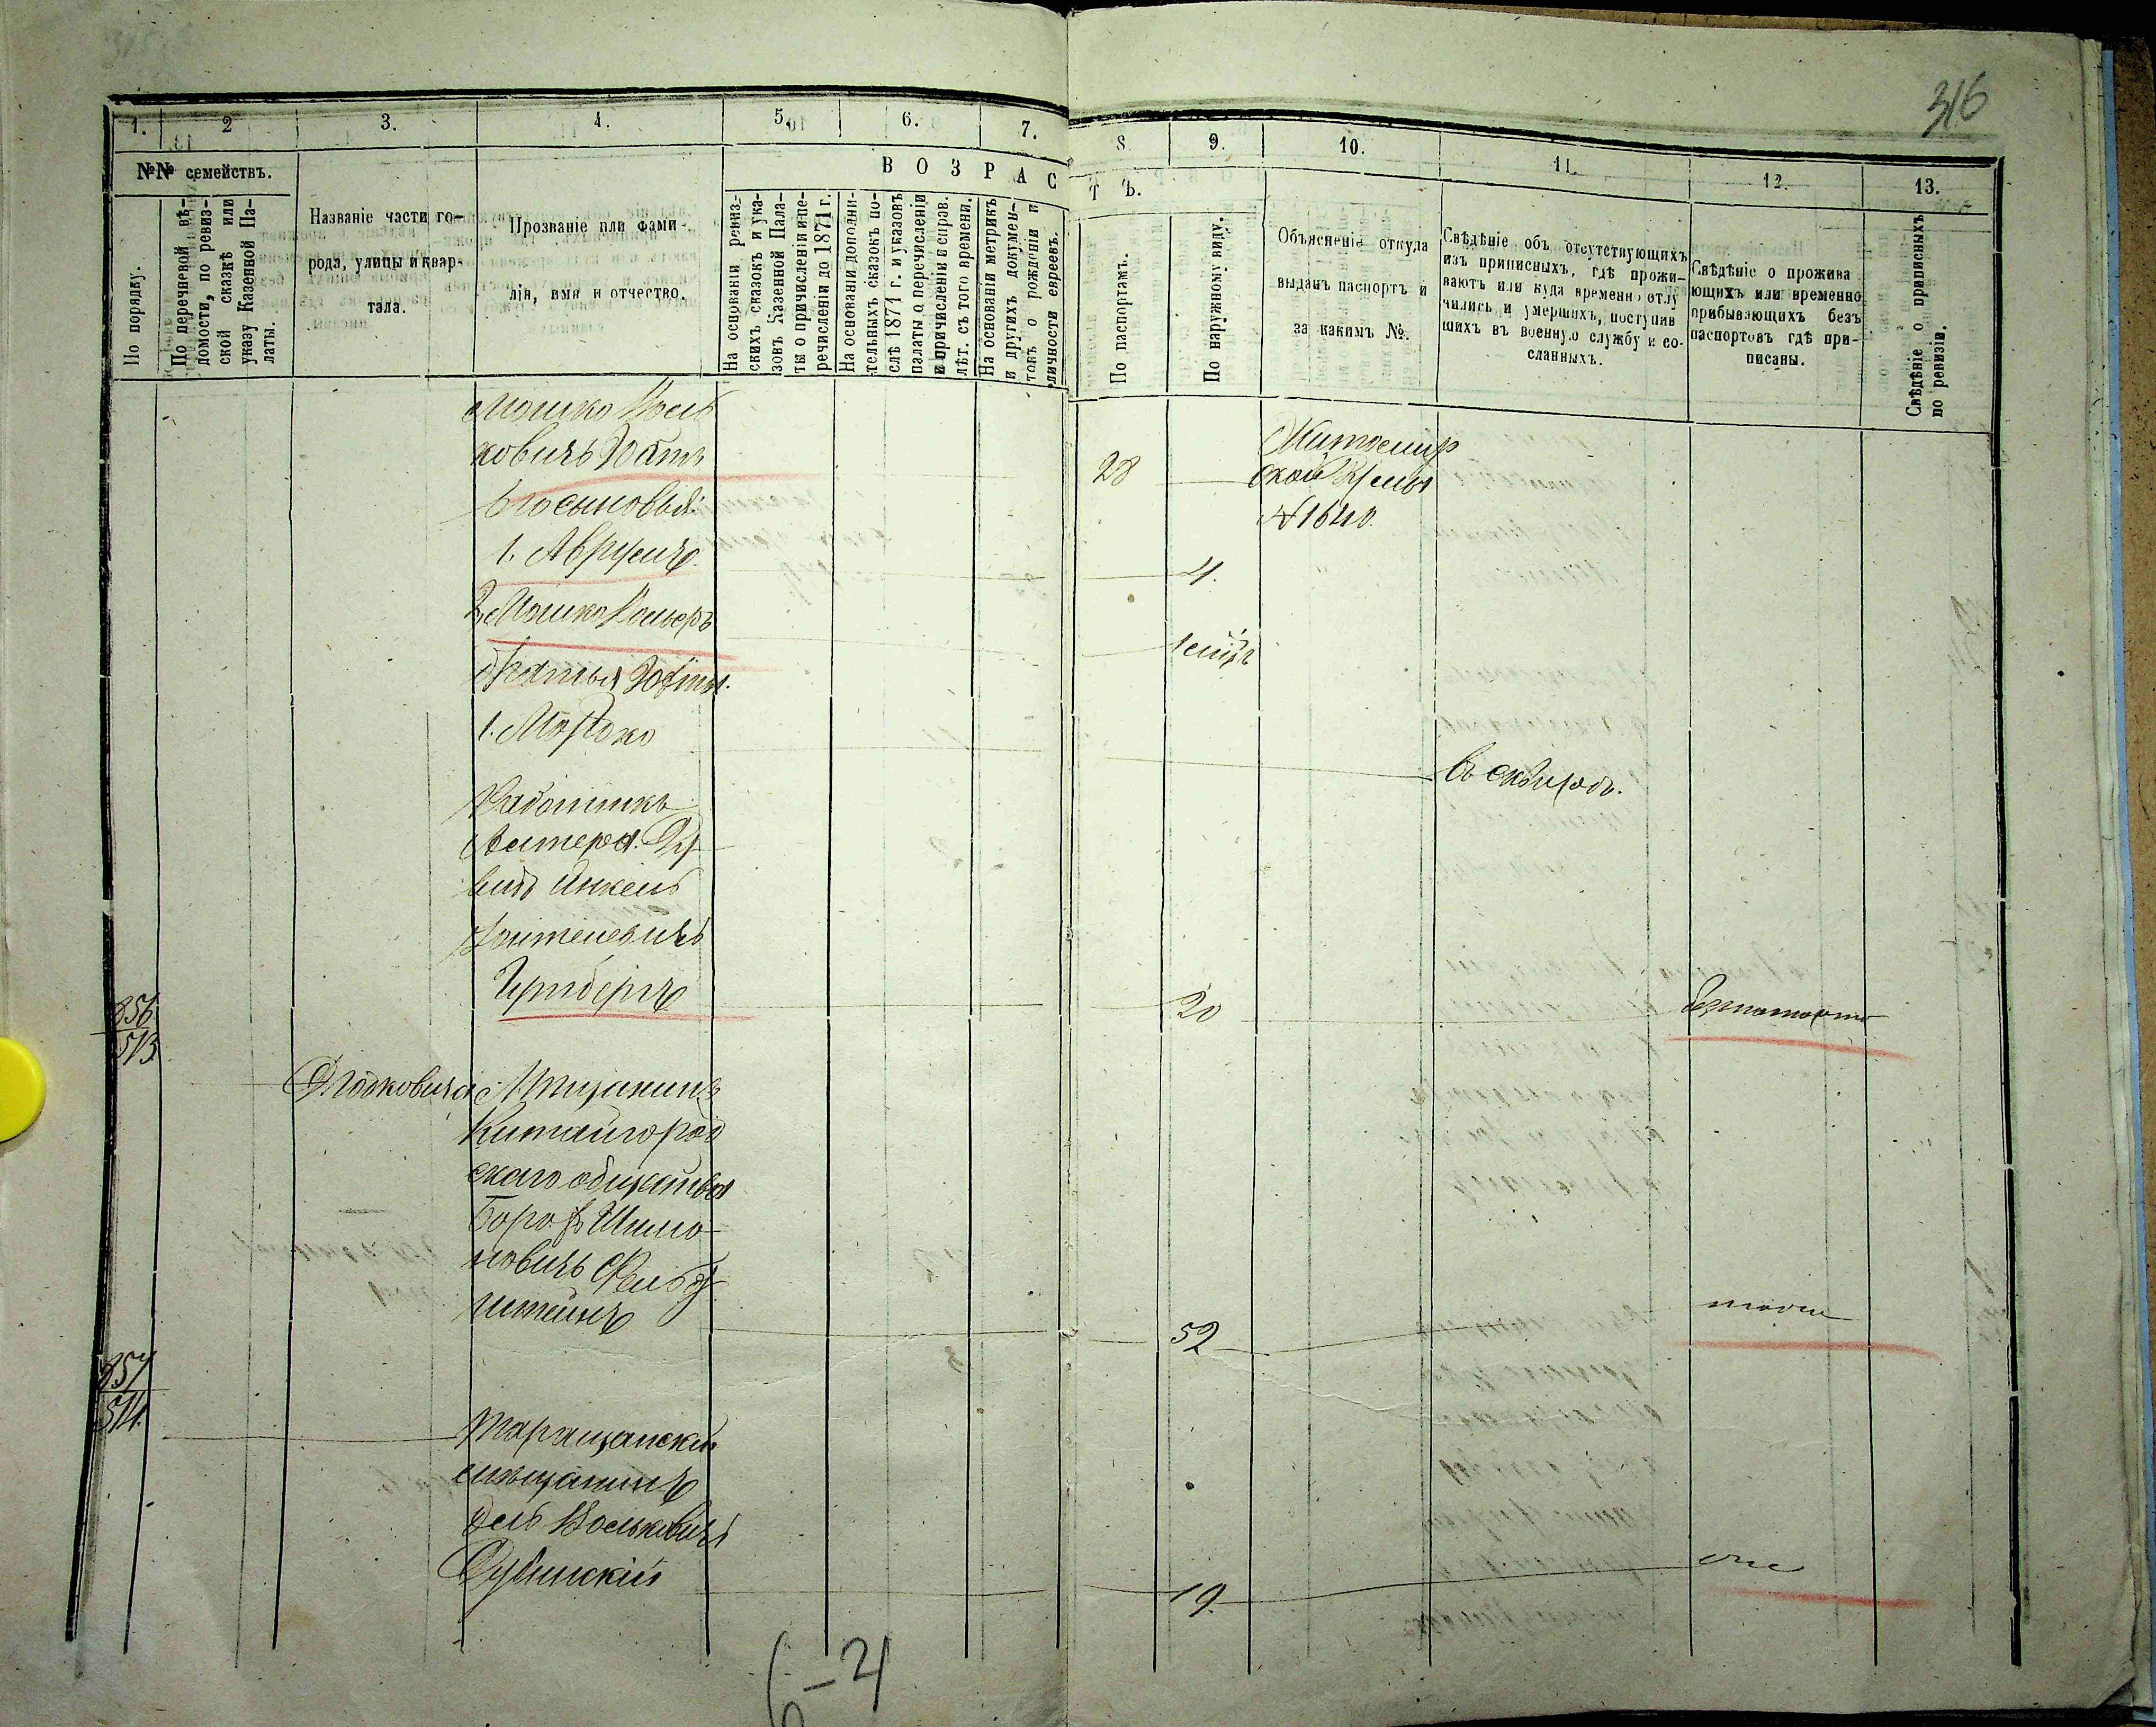 316
1. 2 3. 4. 5. 6. 7. 8. 9. 10. 11. 12. 13.
№№ семействъ.
По порядку.
По перечневой вѣ-
домости, по ревиз-
ской сказкѣ или
указу Казенной Па-
латы.
Названіе части го-
рода, улицы и квар-
тала.
Прозваніе или фами-
лія, имя и отчество.
ВОЗРАСТЪ.
На основаніи ревиз-
скихъ сказокъ и ука-
зовъ Казенной Пала-
ты о причисленіи и пе-
речисленіи до 1871 г.
На основаніи дополни-
тельныхъ сказокъ по-
слѣ 1871 г. и указовъ
палаты о перечисленіи
и причисленіи и справ.
лѣт. съ того времени.
На основаніи метрикъ
и другихъ докумен-
товъ о рожденіи и
личности евреевъ.
По паспортамъ.
По наружному виду.
Объясненіе откуда
выданъ паспортъ и
за какимъ №.
Свѣдѣніе объ отсутствующихъ
изъ приписныхъ, гдѣ прожи-
ваютъ или куда временно отлу
чились и умершихъ, поступив
шихъ въ военную службу и со-
сланныхъ.
Свѣдѣніе о прожива
ющихъ или временно
прибывающихъ безъ
паспортовъ гдѣ при-
писаны.
Свѣдѣніе о приписныхъ
по ревизіи.
Мошко Іось
ковичъ 28
Житомир
ской
№ 1640.
Его сыновья:
1. Аврумъ 4.
2. Мошко
братья
1. Мордко в Сквирѣ.
Работникъ
Янкель
20 безпаспортно
256
513
Мѣщанинъ
Китайгород
скаго общества
Шимо-
новичъ Фельд
штейнъ 52 тоже
257
514
Таращанский
мѣщанинъ
Іоськовичъ
Дубинскій 19. тоже
6-4